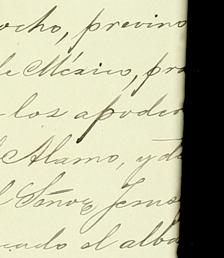 ocho, previno
de México, pro
a los apoder
l Alamo, y de
l Señor Jesus
cado el alba